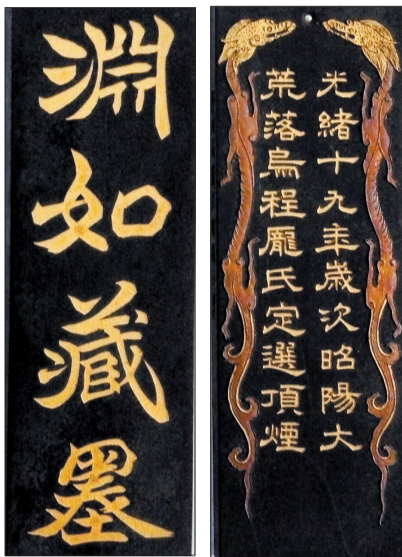 淵如藏墨
光緒十九年歲次昭陽大
荒落烏程龐氏定選頂煙